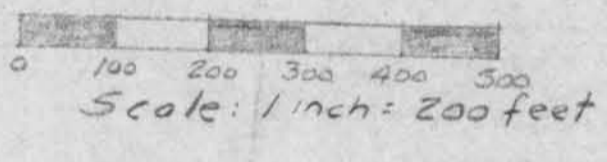 0 100 200 300 400 500
Scale: 1 inch = 200 feet